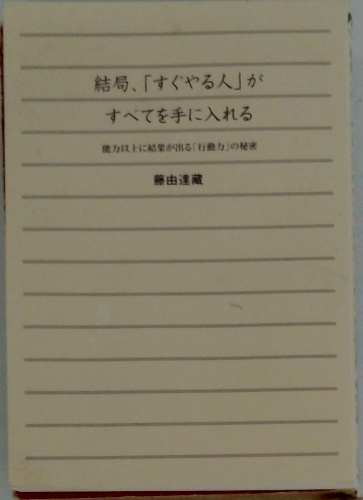 結局、「すぐやる人」が
すべてを手に入れる
能力以上に結果が出る「行動力」の秘密
藤由達藏